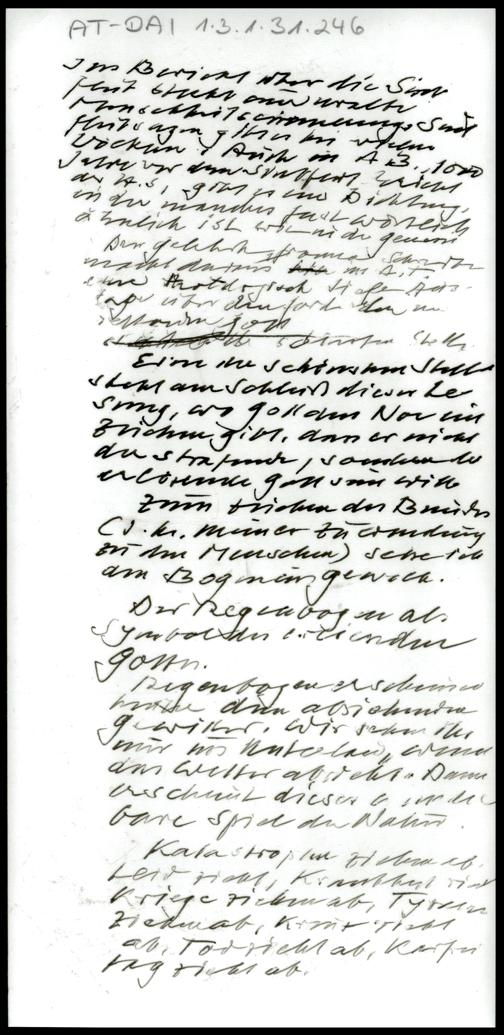 AT-DAI 1.3.1.31.246
Im Bericht über die Sint
flut steckt eine uralte
Menschheitserinnerung. Sint
flutsagen gibt es bei vielen
Völkern. Auch im A. B. 1000
Jahre vor dem
der H.S., gibt es eine Dichtung,
in der manches fast wörtlich
ähnlich ist wie in der Genesis
Der gelehrte fromme
macht daraus im A.T.
eine theologisch tiefe Aus-
sage über den
Gott
schönsten Stelle
Eine der schönsten Stellen
steht am Schluß dieser Le
sung, wo Gott dem Noe ein
Zeichen gibt, dass er nicht
der strafende, sondern der
erlösende Gott sein will
Zum Zeichen des Bundes
(d. h. meiner Zuwendung
zu den Menschen) setze ich
den Bogen ins Gewölk.
Der Regenbogen als
Symbol des
Gottes.
Regenbogen erscheinen
hinter dem abziehenden
Gewitter. Wir sehen ihn
nur im wenn
das Wetter abzieht. Dann
erscheint dieses wunder
bare Spiel der Natur.
Katastrophen ziehen ab.
Leid zieht, Krankheit zieht
Kriege ziehen ab, Tyrannen
ziehen ab, Kreuz zieht
ab, Tod zieht ab, Karfrei
tag zieht ab.